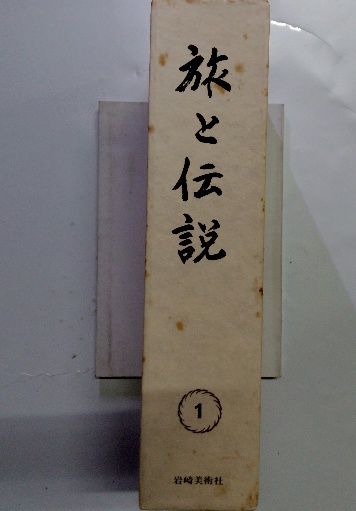 旅と伝説
1
岩崎美術社